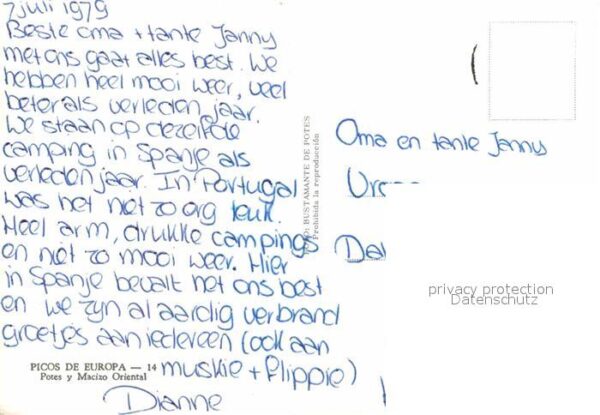 7 juli 1979
Beste oma + tante Janny
met ons gaat alles best. We
hebben heel mooi weer, veel
beter als verleden jaar.
We staan op dezelfde
camping in Spanje als
verleden jaar. In Portugal
was het niet zo erg leuk.
Heel arm, drukke campings
en niet zo mooi weer. Hier
in Spanje bevalt het ons best
en we zyn al aardig verbrand
groetjes aan iedereen (ook aan
muskie + flippie)
Dianne
PICOS DE EUROPA — 14
Potes y Macizo Oriental
BUSTAMANTE DE POTES
Prohibida la reproducción
Oma en tante Janny
privacy protection
Datenschutz